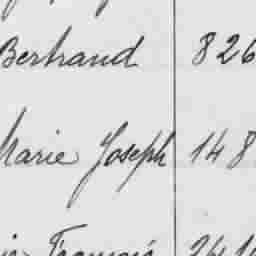 Bertrand 826
Marie Joseph 148
François 241